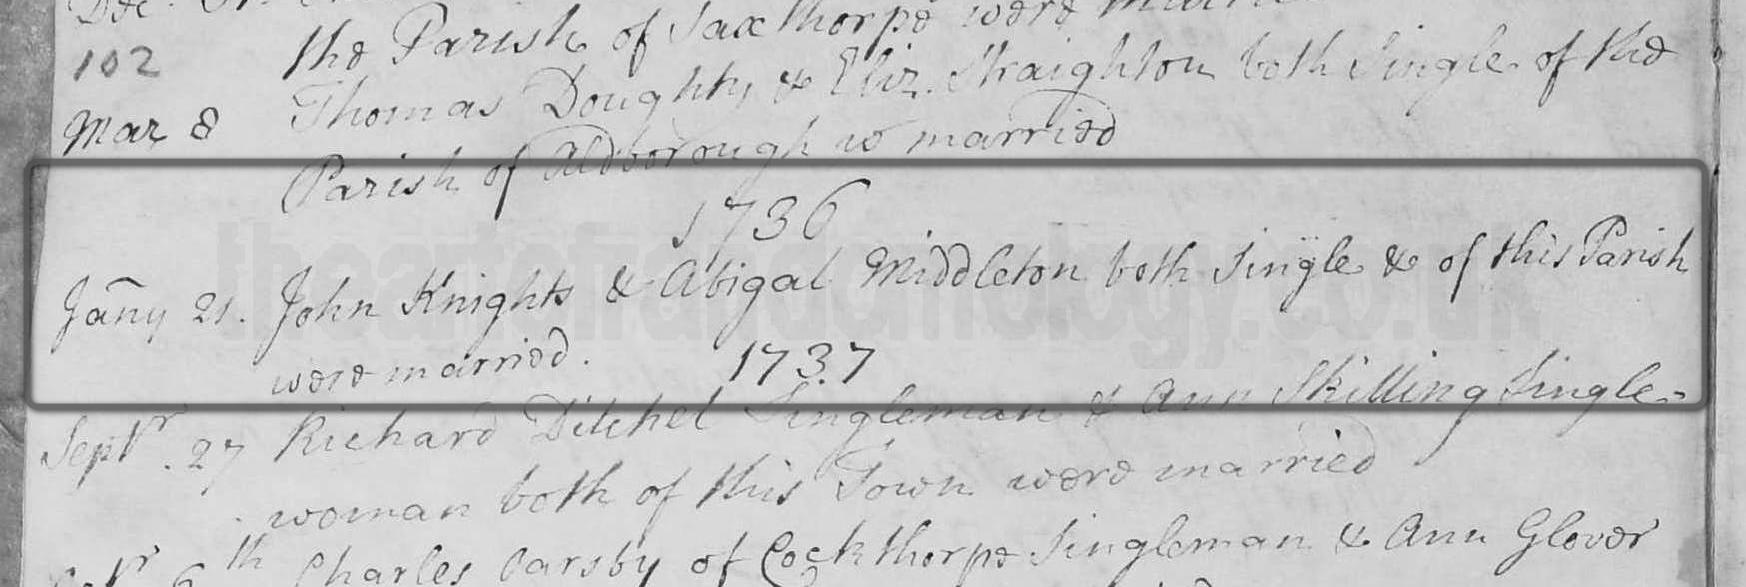 the Parish of Saxthorpe were
102
Thomas Doughty & Eliz. Straighton both Single of the
Mar 8
Parish of Aldborough w married
1736
Jañy 21. John Knights & Abigal Middleton both Single & of this Parish
were married.
1737
Septr. 27 Richard Ditchel Singleman & Ann Skilling Single=
woman both of this Town were married
6th Charles Carsby of Cockthorpe Singleman & Ann Glover
theartofrandomology.co.uk